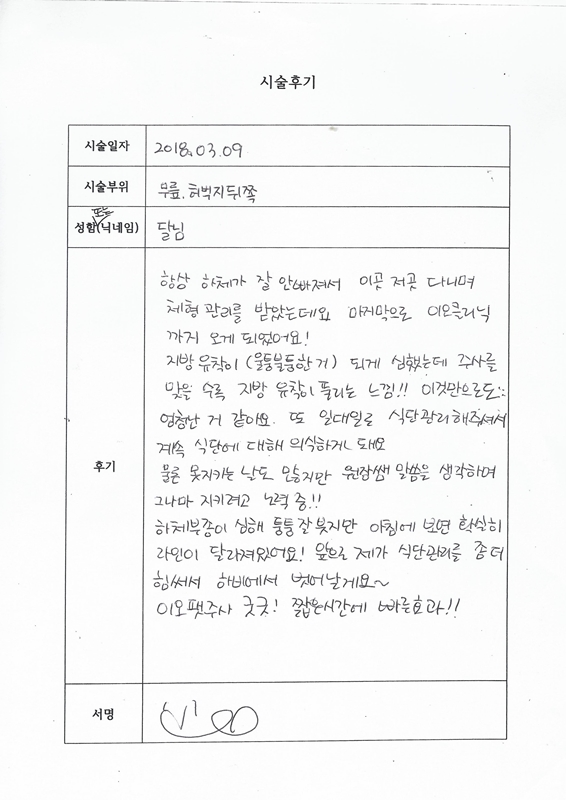 시술후기
시술일자 2018.03.09
시술부위 무릎.허벅지뒤쪽
또는
성함(닉네임) 달님
후기
항상 하체가 잘 안빠져서 이곳 저곳 다니며
체형 관리를 받았는데요 마지막으로 이오클리닉
까지 오게 되었어요!
지방 유착이 (울퉁불퉁한 거) 되게 심했는데 주사를
맞을 수록 지방 유착이 풀리는 느낌!! 이것만으로도
엄청난 거 같아요. 또 일대일로 식단관리해주셔서
계속 식단에 대해 의식하게 돼요
물론 못지키는 날도 많지만 원장쌤 말씀을 생각하며
그나마 지키려고 노력 중!!
하체부종이 심해 퉁퉁 잘 붓지만 아침에 보면 확실히
라인이 달라져있어요! 앞으로 제가 식단관리를 좀 더
힘써서 하비에서 벗어날게요~
이오팻주사 굿굿! 짧은시간에 빠른효과!!
서명